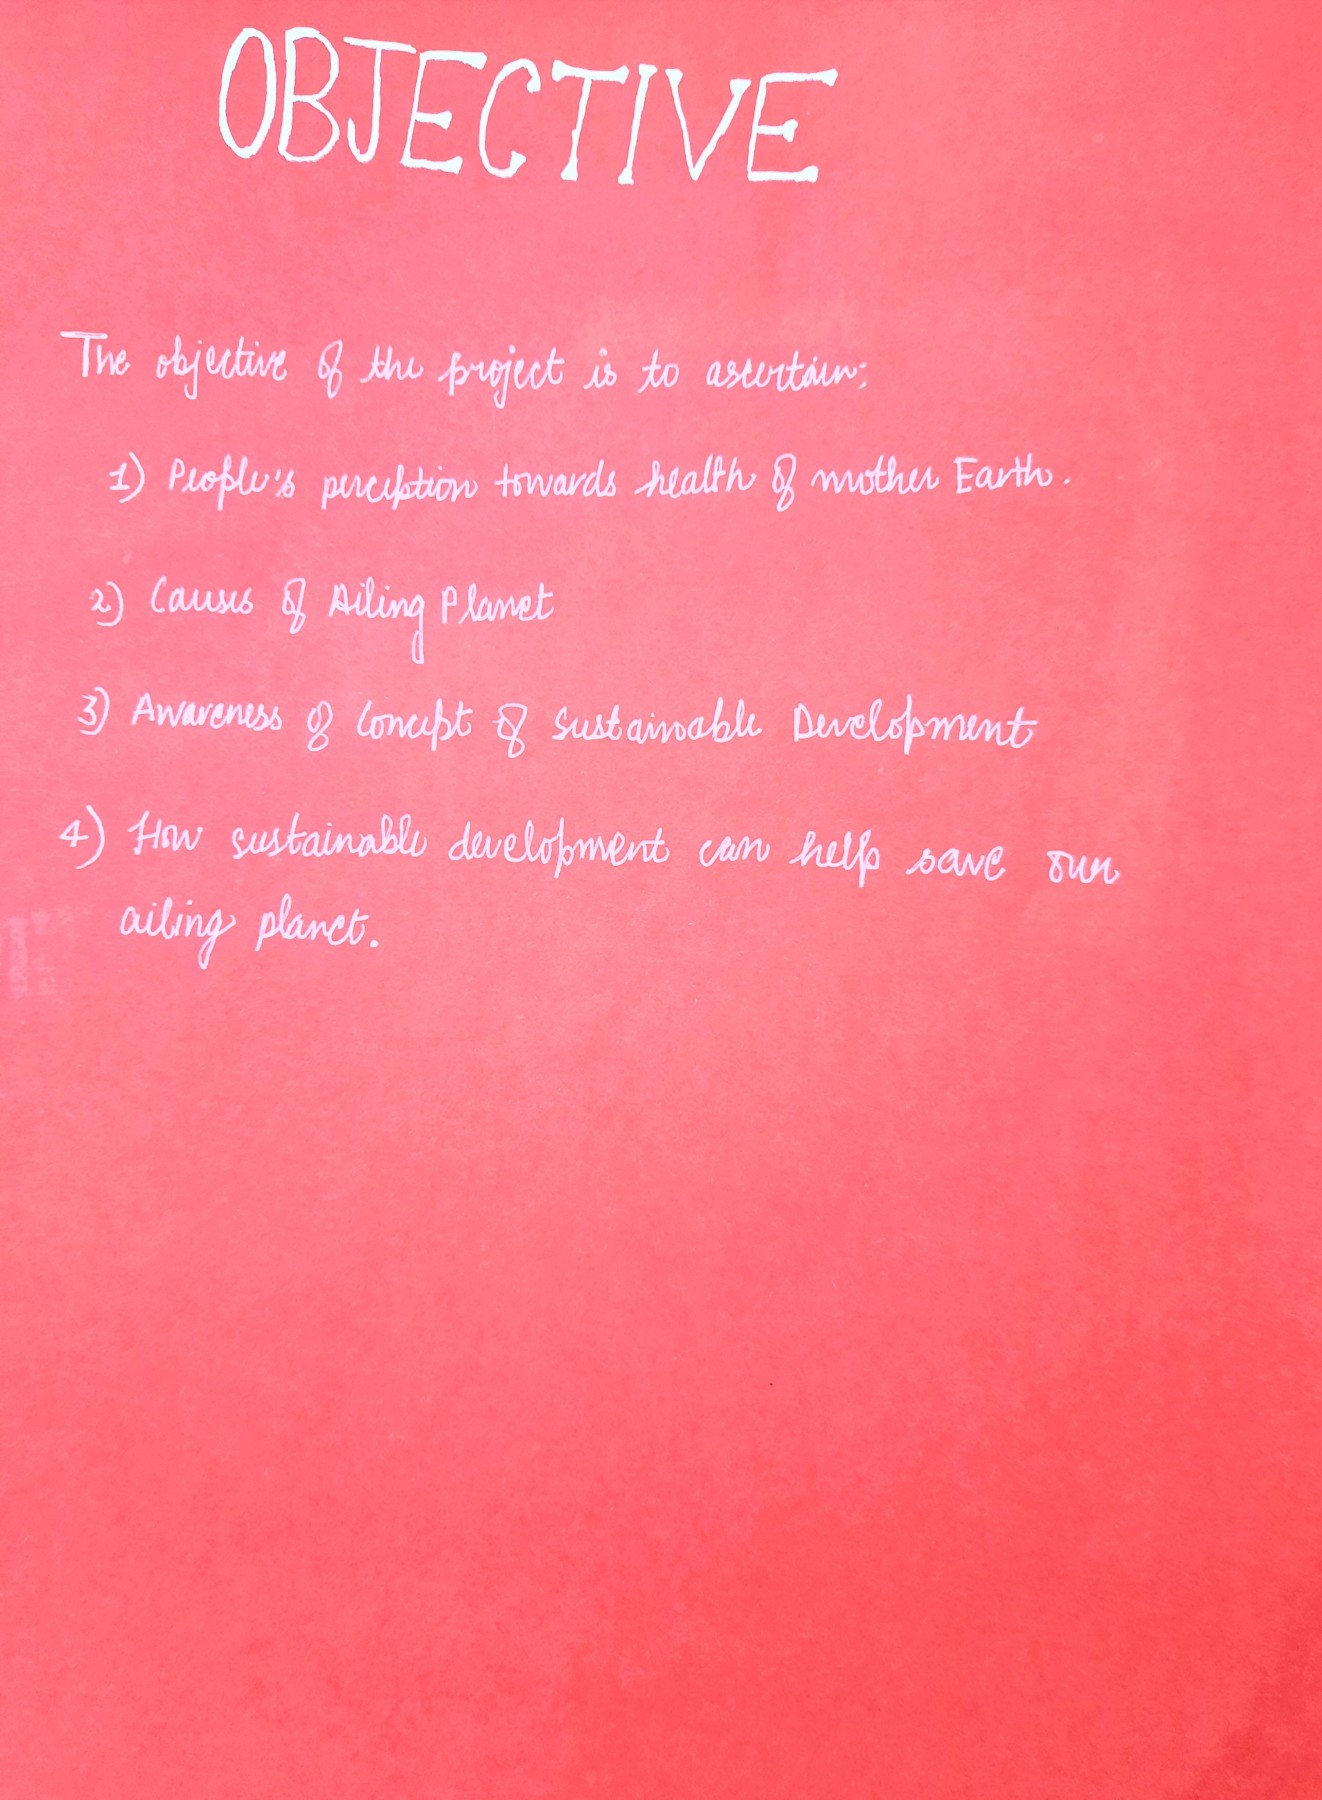 OBJECTIVE
The objective of the project is to ascertain:
1) People's perception towards health of mother Earth.
2) Causes of Ailing Planet
3) Awareness of Concept of Sustainable Development
4) How sustainable development can help save our
ailing planet.